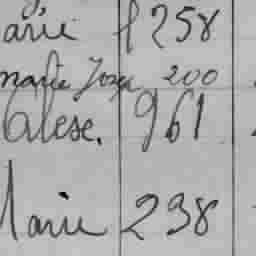 arie f 258
marie Josep 200
alese. 961
Marie 238